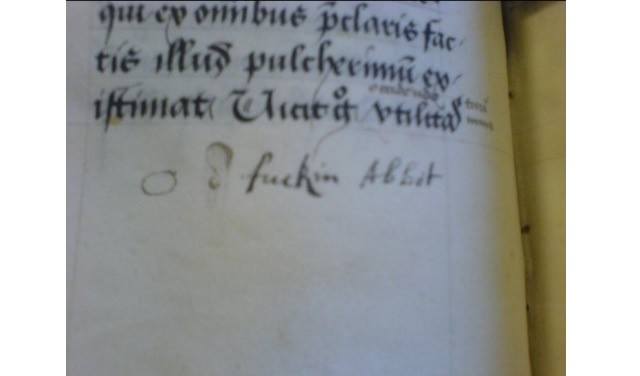 qui ex omnibus p̄claris fac-
tis illud pulcherimū ex-
istimat Uicit gͦ vtilitaꝭ
O d fuckin Abbot